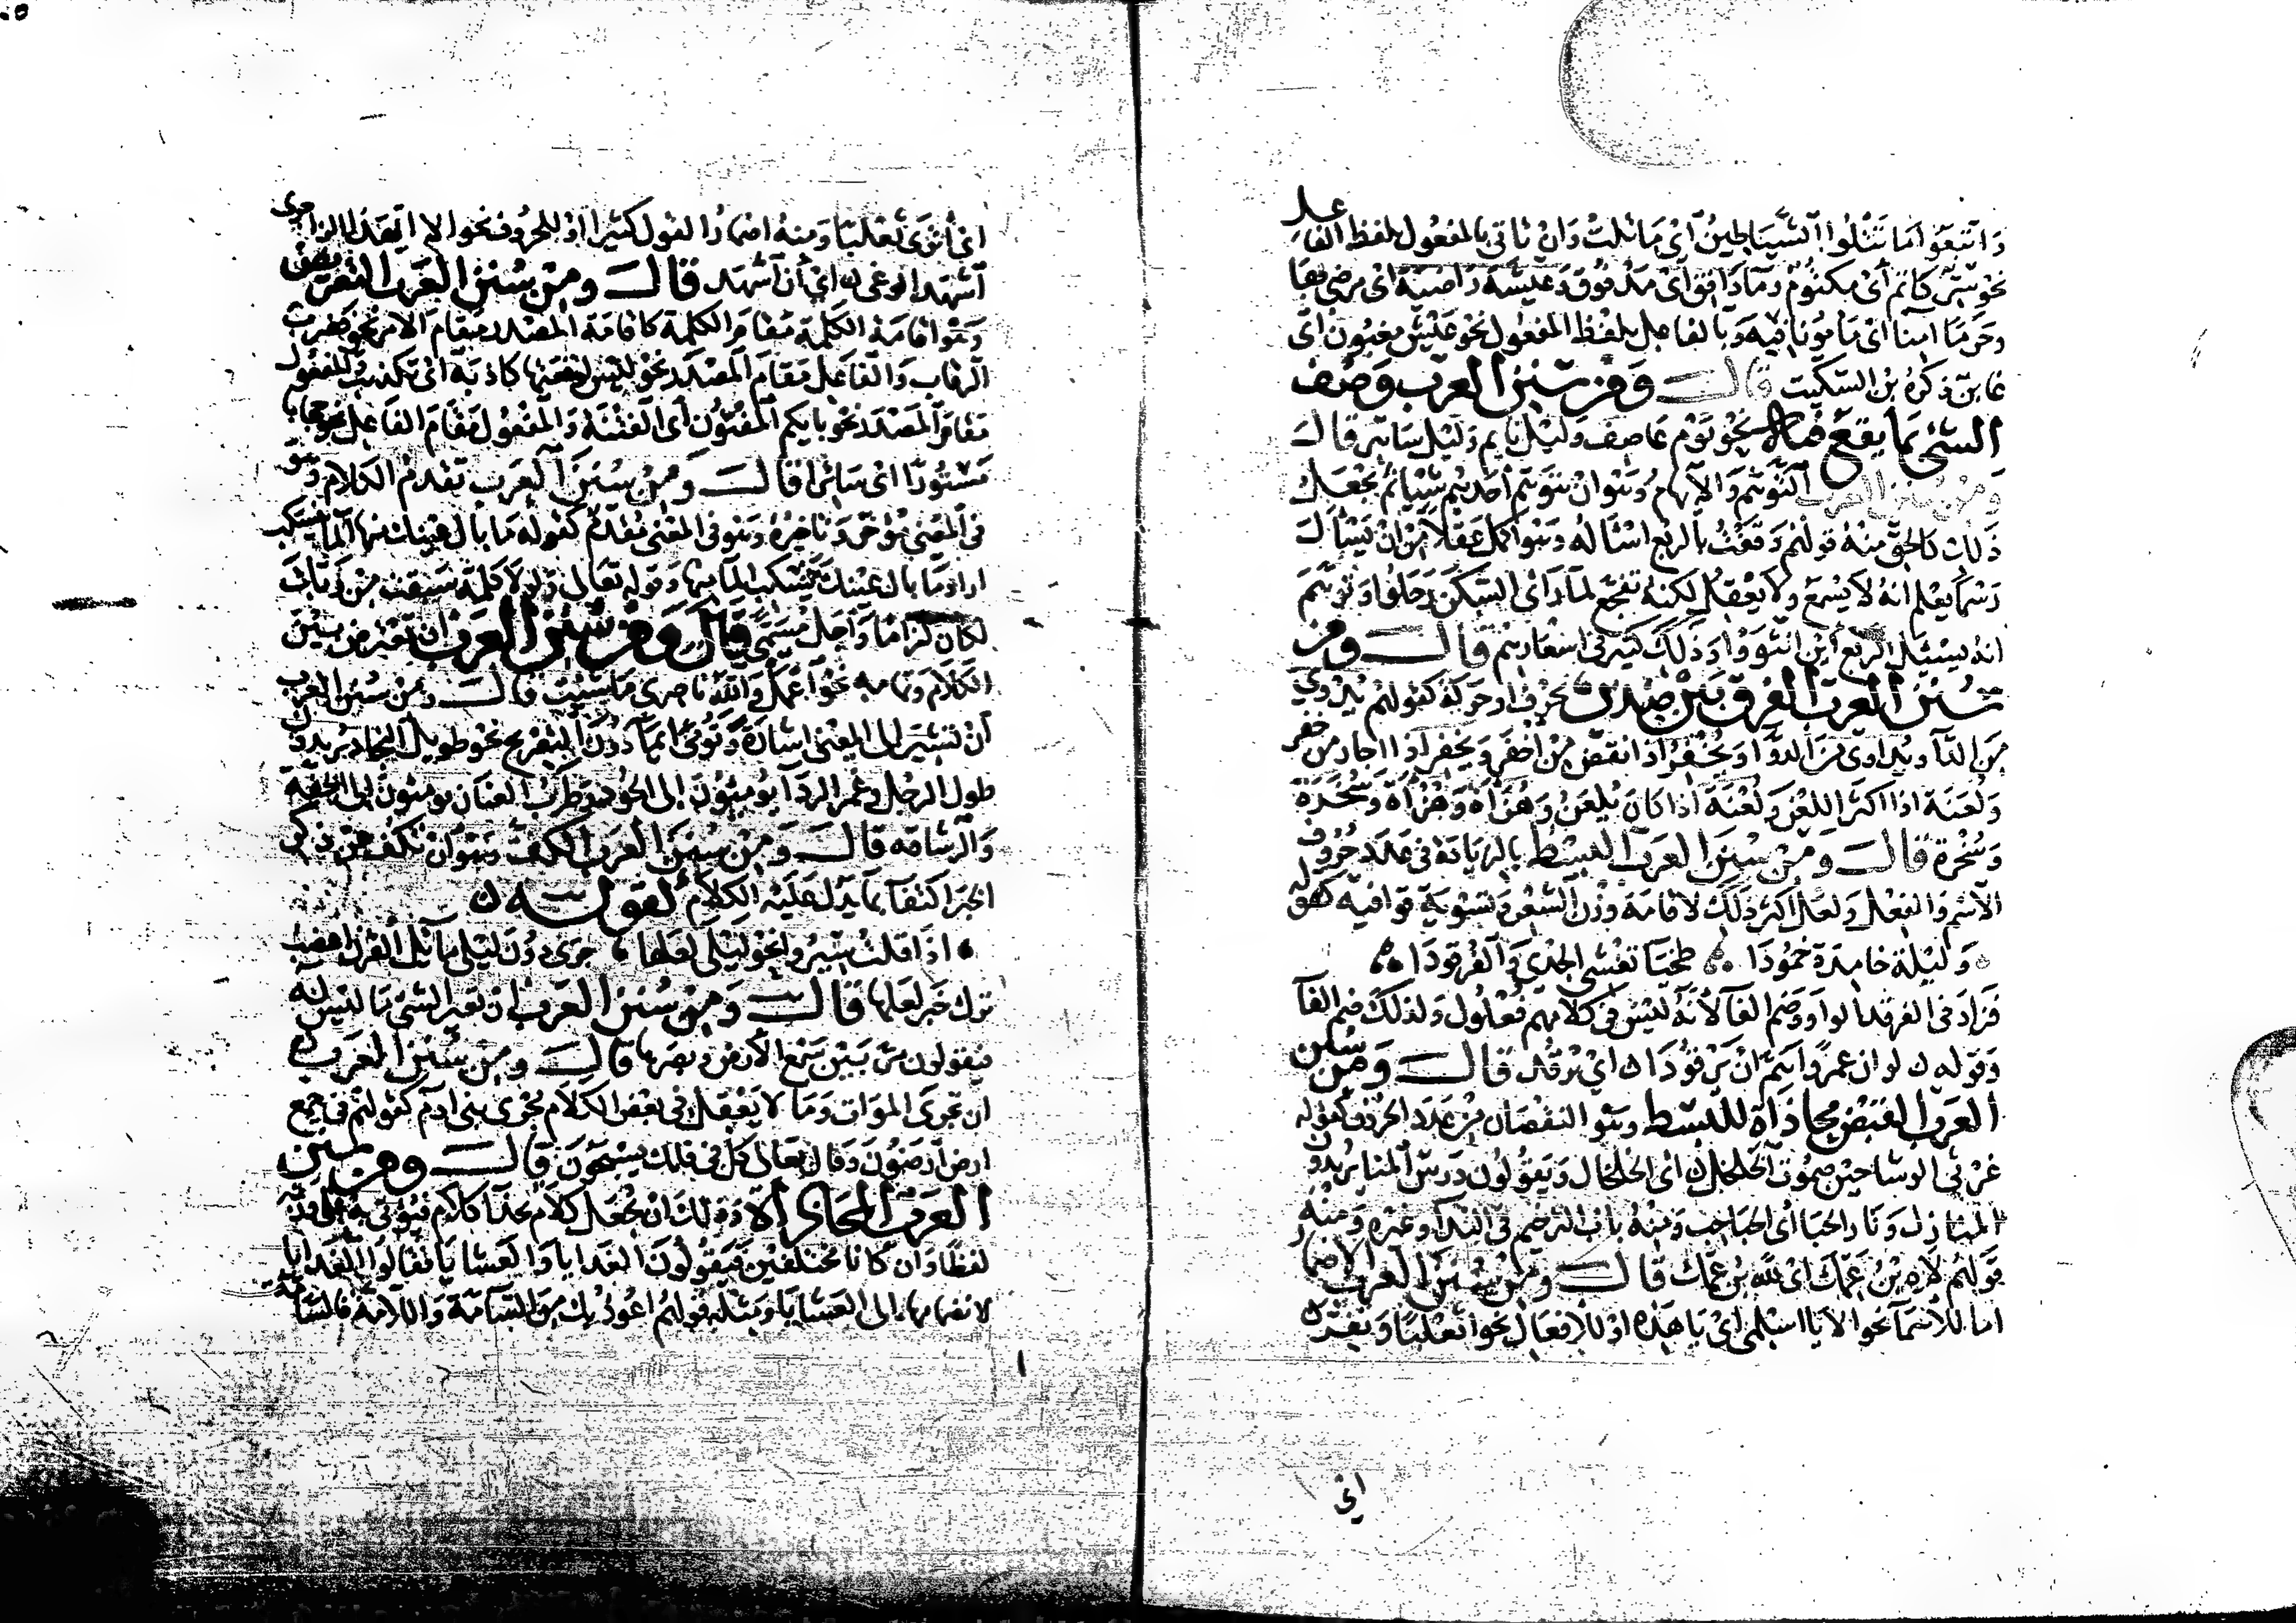 واتبعوا ما تتلوا الشياطين أي ما تلت وأن يأتي بالمفعول بلفظ الفاعل
نحو سر كاتم أي مكتوم وماء دافق أي مدفوق وعيشة راضية أي مرضي بها
وحرما آمنا أي مأمونا فيه وبالفاعل بلفظ المفعول نحو عيش مغبون أي
غابن ذكره بن السكيت قال ومن سنن العرب وصف
الشيء بما يقع فيه نحو يوم عاصف وليل نايم وليل ساهر قال
ومن سنن العرب التوهم والايهام وهو ان يتوهم أحدهم شيئا ثم يجعل
ذلك كالحق منه قولهم وقفت بالربع اسأله وهو أكمل عقلا من ان يسأل
رسما يعلم انه لا يسمع ولا يعقل لكنه تفجع لما رأى السكن رحلوا وتوهم
انه يسئل الربع أين انتووا وذلك كثير في اشعارهم قال ومن
سنن العرب الفرق بين ضدين بحرف او حركة كقولهم يدوي
من الداء ويداوي من الدواء ويخفر اذا نقض من أخفر ويخفر اذا اجار من خفر
ولعنة اذا اكثر اللعن ولعنة اذا كان يلعن وهزأة وهزأة وسخرة
وسخرة قال ومن سنن العرب البسط بالزيادة في عدد حروف
الاسم والفعل ولعل اكثر ذلك لاقامة وزن الشعر وتسوية قوافيه كقوله
وليلة خامدة خمودا طخياء تغشى الجدي والفرقودا
فزاد في الفرقد الواو وضم الفاء لأنه ليس في كلامهم فعلول ولذلك ضم الفاء
وقوله لو ان عمرا هم أن يرقودا أي يرقد قال ومن سنن
العرب القبض محاذاة للبسط وهو النقصان من عدد الحروف كقوله
غرثى الوشاحين صموت الخلخل أي الخلخال ويقولون درس المنا يريدون
المنازل ونار الحبا أي الحباحب ومنه باب الترخيم في النداء وغيره ومنه
قولهم لاه بن عمك أي لله بن عمك قال ومن سنن العرب الاضمار
اما للأسماء نحو الا يا اسلمي أي يا هذه او للافعال نحو أثعلبا وتفر
أي
أي أترى ثعلبا ومنه اضمار القول كثيرا او للحروف نحو الا ايهذا الزاجري
أشهد الوغى أي أن أشهد قال ومن سنن العرب التعويض
وهو اقامة الكلمة مقام الكلمة كاقامة المصدر مقام الامر نحو فضرب
الرقاب والفاعل مقام المصدر نحو ليس لوقعتها كاذبة أي تكذيب والمفعول
مقام المصدر نحو بايكم المفتون أي الفتنة والمفعول مقام الفاعل نحو حجابا
مستورا أي ساترا قال ومن سنن العرب تقديم الكلام وهو
في المعنى مؤخر وتاخيره وهو في المعنى مقدم كقوله ما بال عينك منها الماء ينسكب
اراد ما بال عينك ينسكب الماء منها وقوله تعالى ولولا كلمة سبقت من ربك
لكان لزاما وأجل مسمى قال ومن سنن العرب ان تعترض بين
الكلام وتمامه نحو اعمل والله ناصري ما شيت قال ومن سنن العرب
أن تشير الى المعنى اشارة وتومئ ايماء دون التصريح نحو طويل النجاد يريدون
طول الرجل وغمر الرداء يومئون إلى الجود وطرب العنان يومئون الى الخفة
والرشاقه قال ومن سنن العرب الكف وهو أن تكف عن ذكر
الخبر اكتفاء بما يدل عليه الكلام كقوله
اذا قلت سيروا نحو ليلى لعلها جرى دون ليلى مائل القرن اعضب
ترك خبر لعلها قال ومن سنن العرب ان تعير الشيء ما ليس له
فيقولون مر بين سمع الأرض وبصرها قال ومن سنن العرب
ان تجري الموات وما لا يعقل في بعض الكلام مجرى بني ادم كقولهم في جمع
ارض أرضون وقال تعالى كل في فلك يسبحون قال ومن سنن
العرب المحاذاة وذلك ان تجعل كلام بحذا كلام فيؤتى به على وزنه
لفظا وان كانا مختلفين فيقولون الغدايا والعشايا فقالوا الغدايا
لانضمامها الى العشايا ومثله قولهم اعوذ بك من السامة واللامة فالسامة